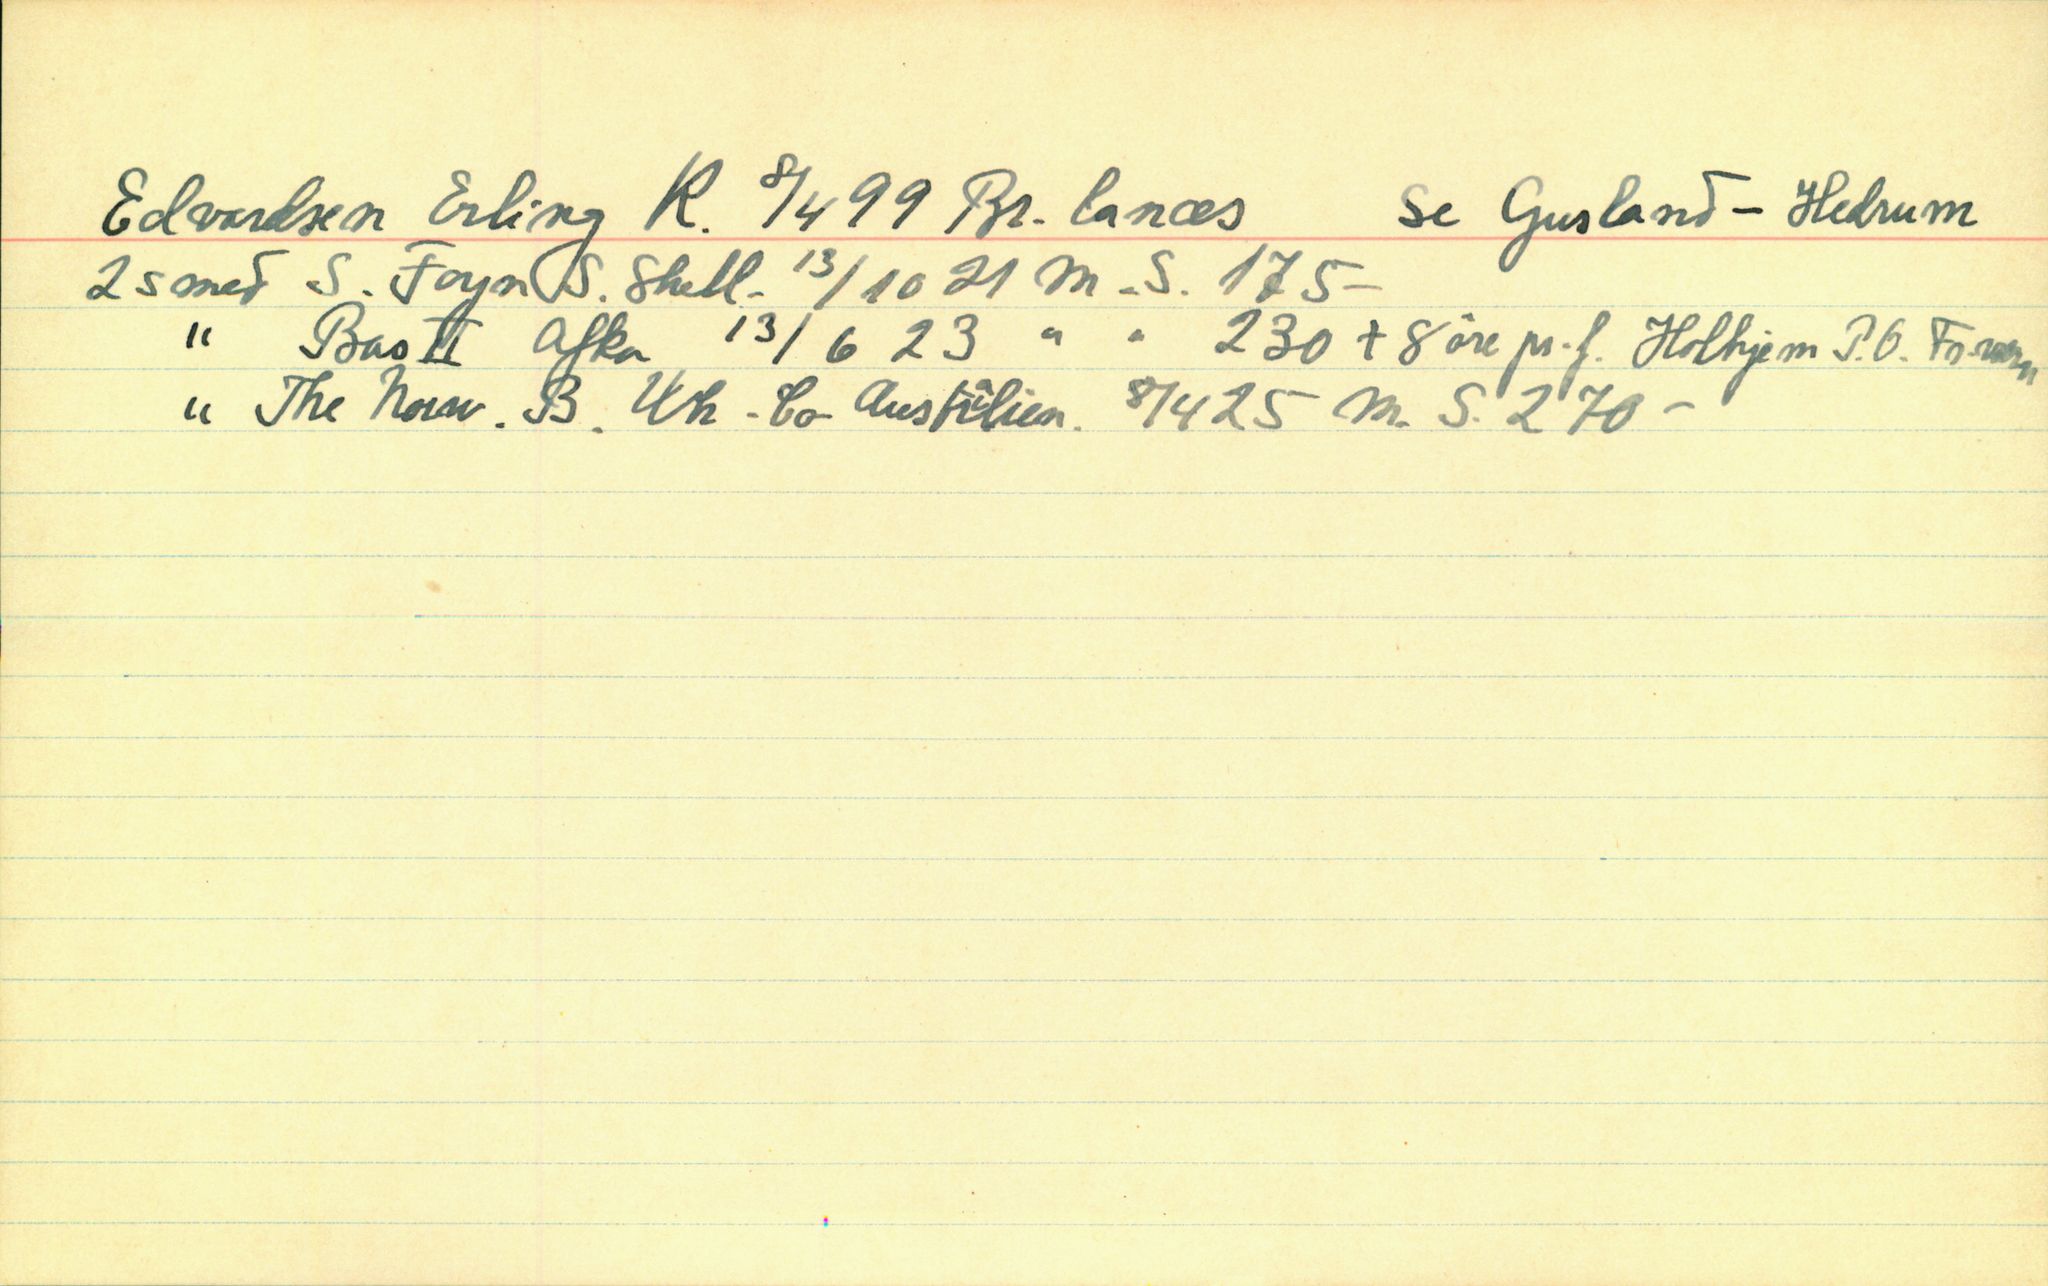 Edvardsen Erling K. 8/4 99 Br. lanæs Se Gusland - Hedrum
2 smed S. Foyn S. Shetl. 13/10 21 M.S. 175-
" Bas II Afka 13/6 23 " " 230 + 8 öre pr. f. Holhjem P.O. 
" The Norw. B. Wh. Co Australien. 8/4 25 M. S. 270 -